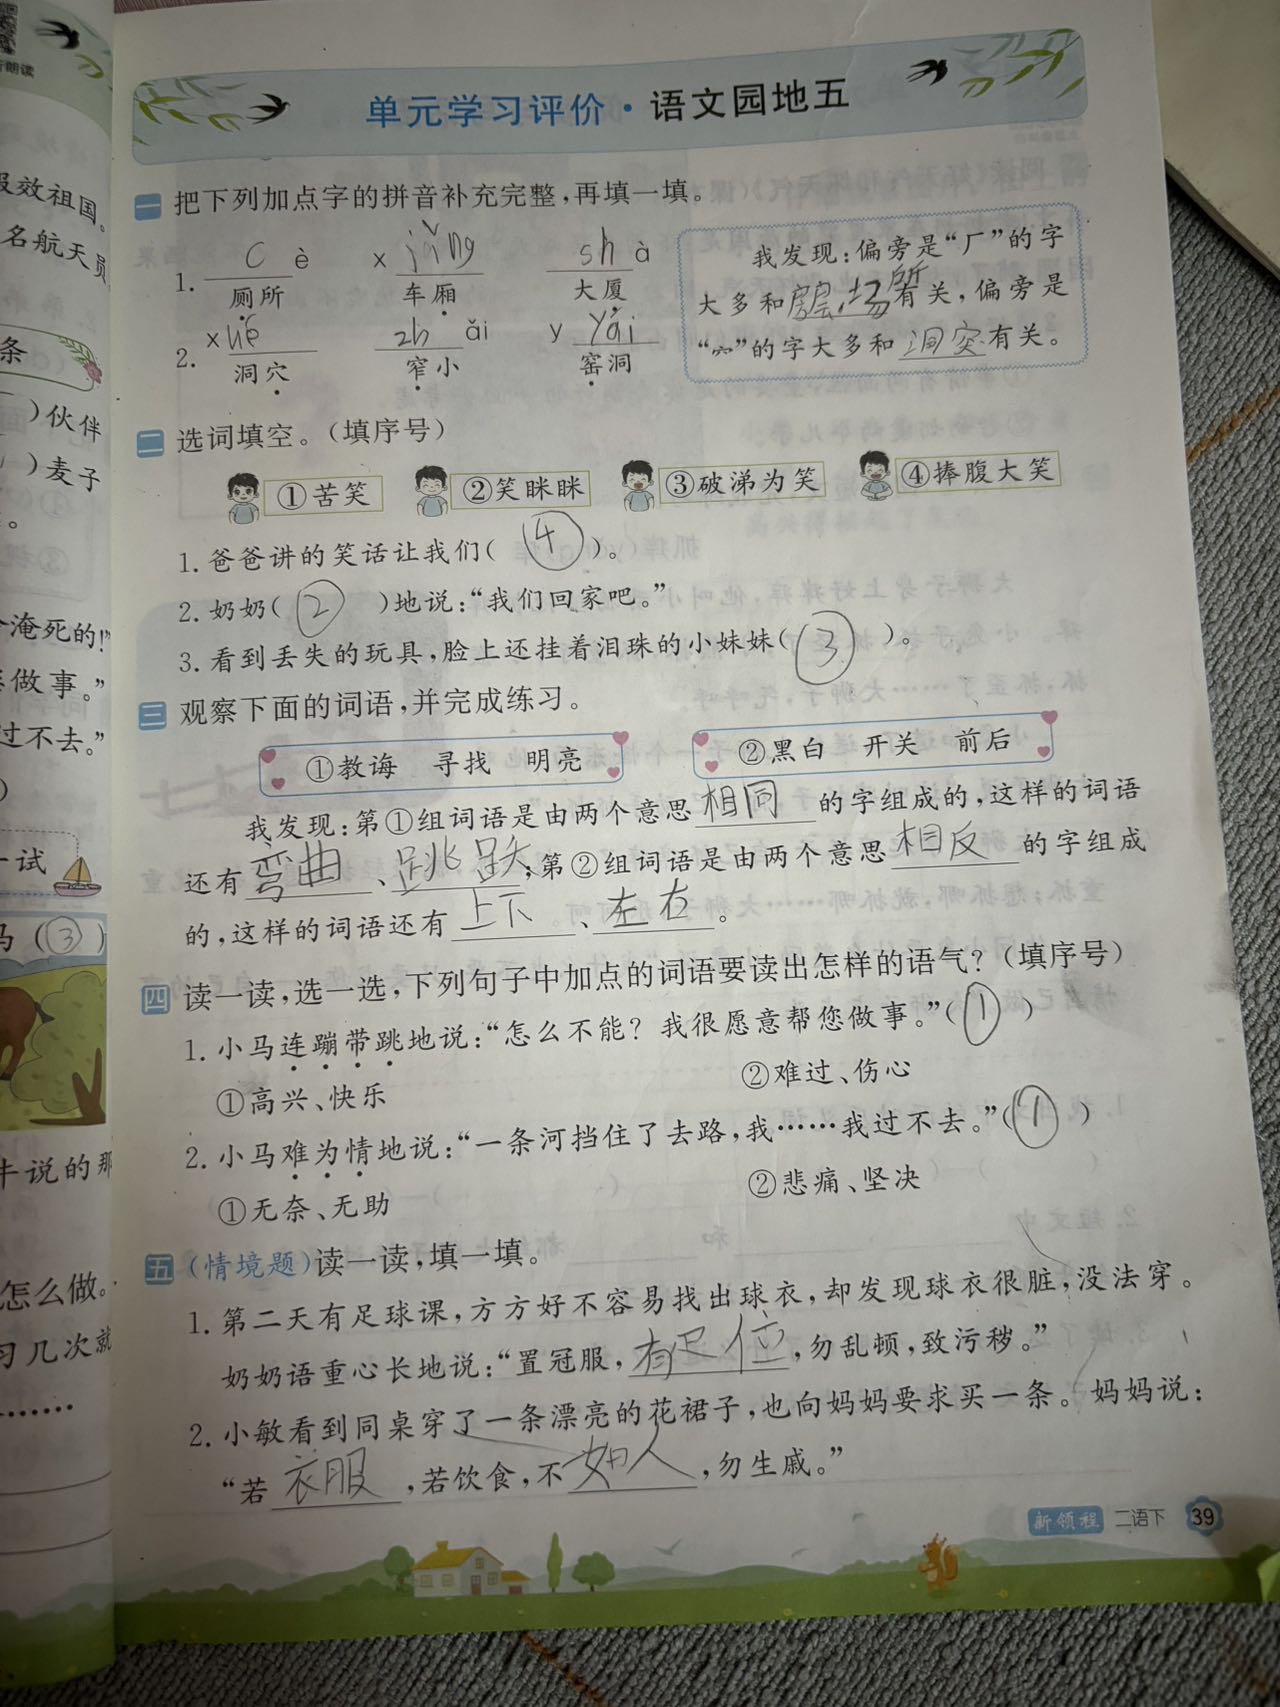 行朗读
报效祖国。
名航天员
条
)伙伴
)麦子
。
淹死的!”
做事。”
过不去。”
)
一试
马(③)
牛说的那
怎么做。
习几次就
……
单元学习评价·语文园地五
一 把下列加点字的拼音补充完整,再填一填。
1. c è x jǐng sh à
厕所 车厢 大厦
2. xué zh ǎi y yái
洞穴 窄小 窑洞
我发现:偏旁是“厂”的字
大多和房屋,场所有关,偏旁是
“穴”的字大多和 洞穴 有关。
二 选词填空。(填序号)
①苦笑 ②笑眯眯 ③破涕为笑 ④捧腹大笑
1. 爸爸讲的笑话让我们( ④ )。
2. 奶奶( ② )地说:“我们回家吧。”
3. 看到丢失的玩具,脸上还挂着泪珠的小妹妹( ③ )。
三 观察下面的词语,并完成练习。
①教诲 寻找 明亮 ②黑白 开关 前后
我发现:第①组词语是由两个意思 相同 的字组成的,这样的词语
还有 弯曲 、 跳跃 ;第②组词语是由两个意思 相反 的字组成
的,这样的词语还有 上下 、 左右 。
四 读一读,选一选,下列句子中加点的词语要读出怎样的语气?(填序号)
1. 小马连蹦带跳地说:“怎么不能?我很愿意帮您做事。”( ① )
①高兴、快乐 ②难过、伤心
2. 小马难为情地说:“一条河挡住了去路,我……我过不去。”( ① )
①无奈、无助 ②悲痛、坚决
五 (情境题)读一读,填一填。
1. 第二天有足球课,方方好不容易找出球衣,却发现球衣很脏,没法穿。
奶奶语重心长地说:“置冠服, 有定位 ,勿乱顿,致污秽。”
2. 小敏看到同桌穿了一条漂亮的花裙子,也向妈妈要求买一条。妈妈说:
“若 衣服 ,若饮食,不 如人 ,勿生戚。”
新领程 二语下 39